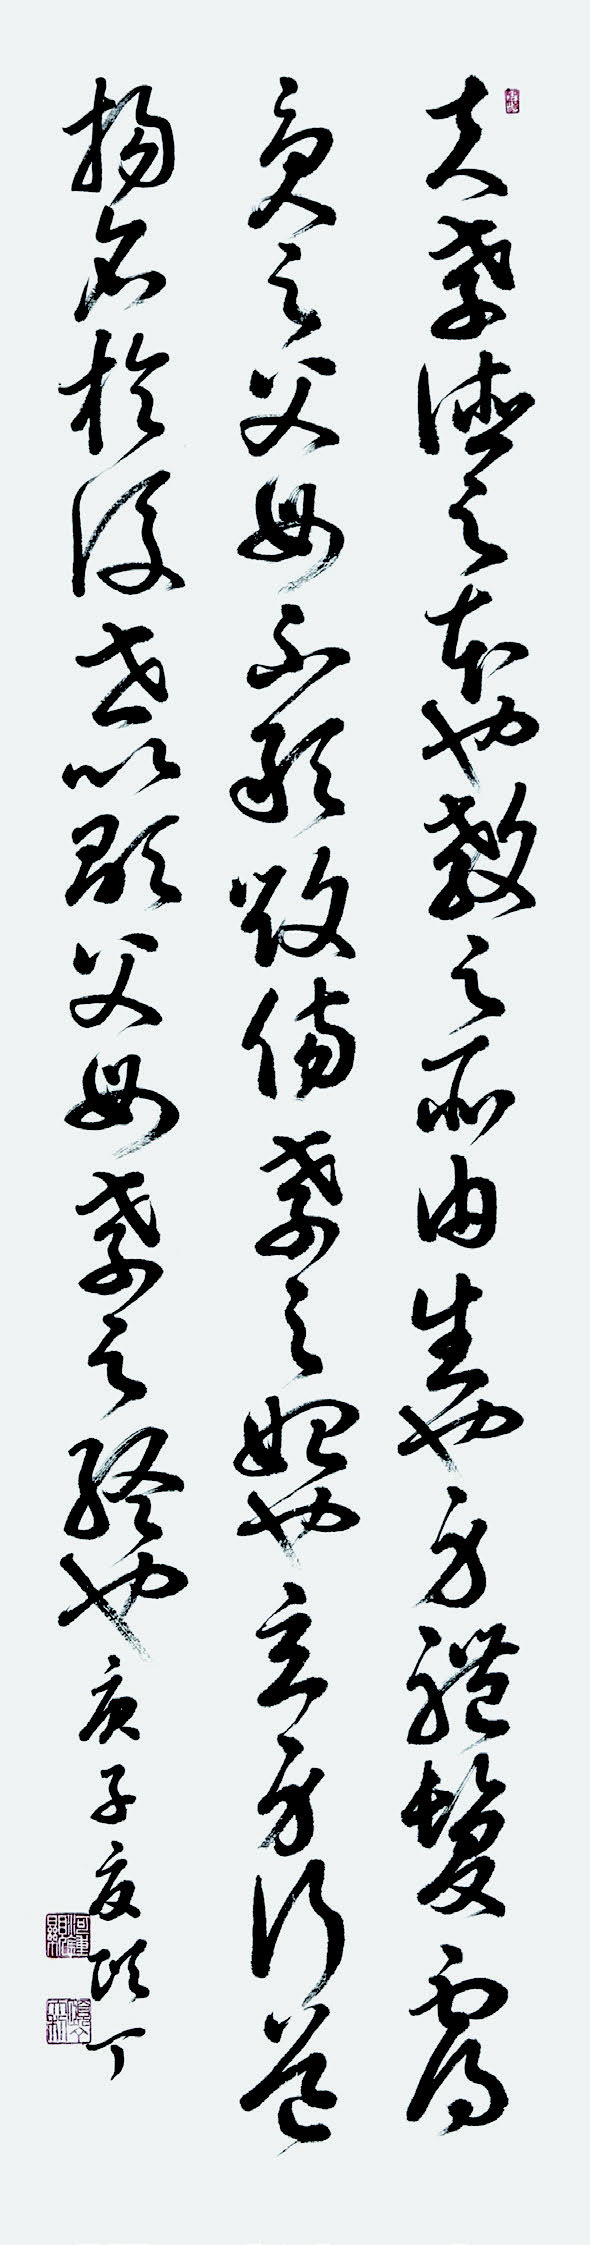 夫孝德之本也教之所由生也身體髮膚
受之父母不敢毀傷孝之始也立身行道
揚名於後世以顯父母孝之終也庚子夏